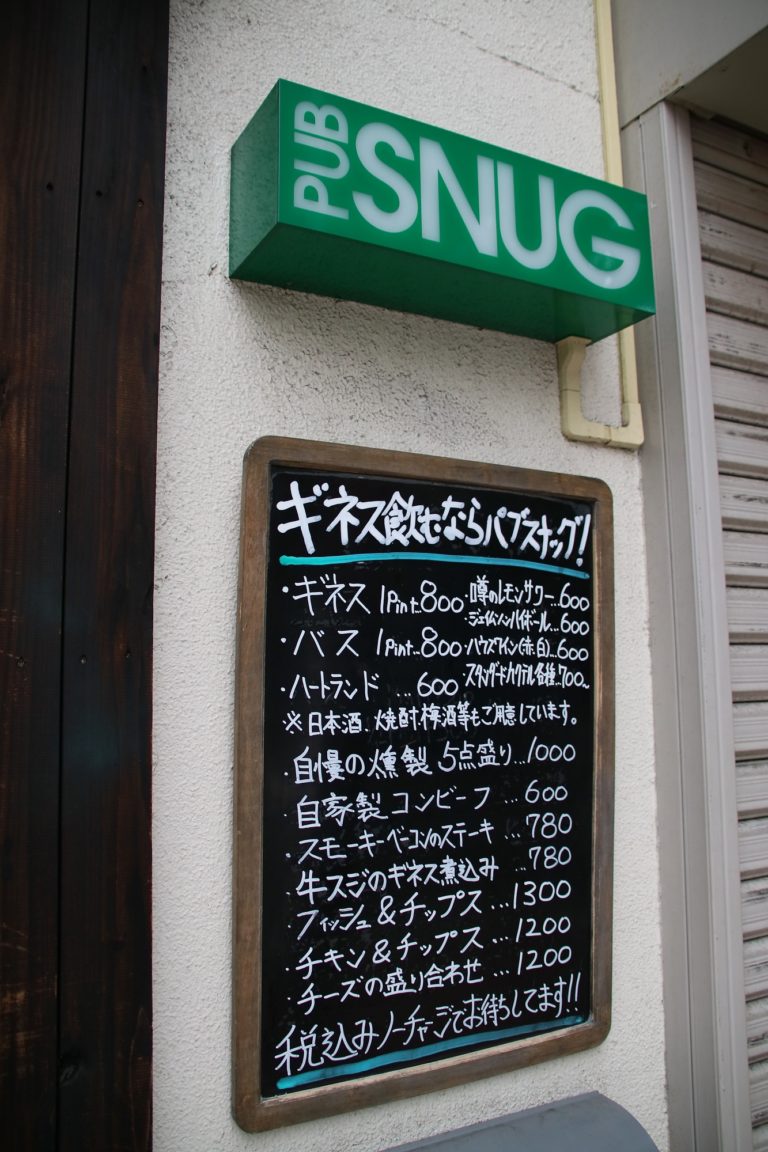 PUB SNUG
ギネス飲むならパブスナッグ!
・ギネス 1Pint...800
・バス 1Pint...800
・ハートランド ...600
・噂のレモンサワー...600
・ジェイムソンハイボール...600
・ハウスワイン(赤、白)...600
・スタンダードカクテル各種...700~
※日本酒、焼酎、梅酒等もご用意しています。
・自慢の燻製 5点盛り...1000
・自家製コンビーフ ...600
・スモーキーベーコンのステーキ ...780
・牛スジのギネス煮込み ...780
・フィッシュ&チップス ...1300
・チキン&チップス ...1200
・チーズの盛り合わせ ...1200
税込みノーチャージでお待ちしてます!!